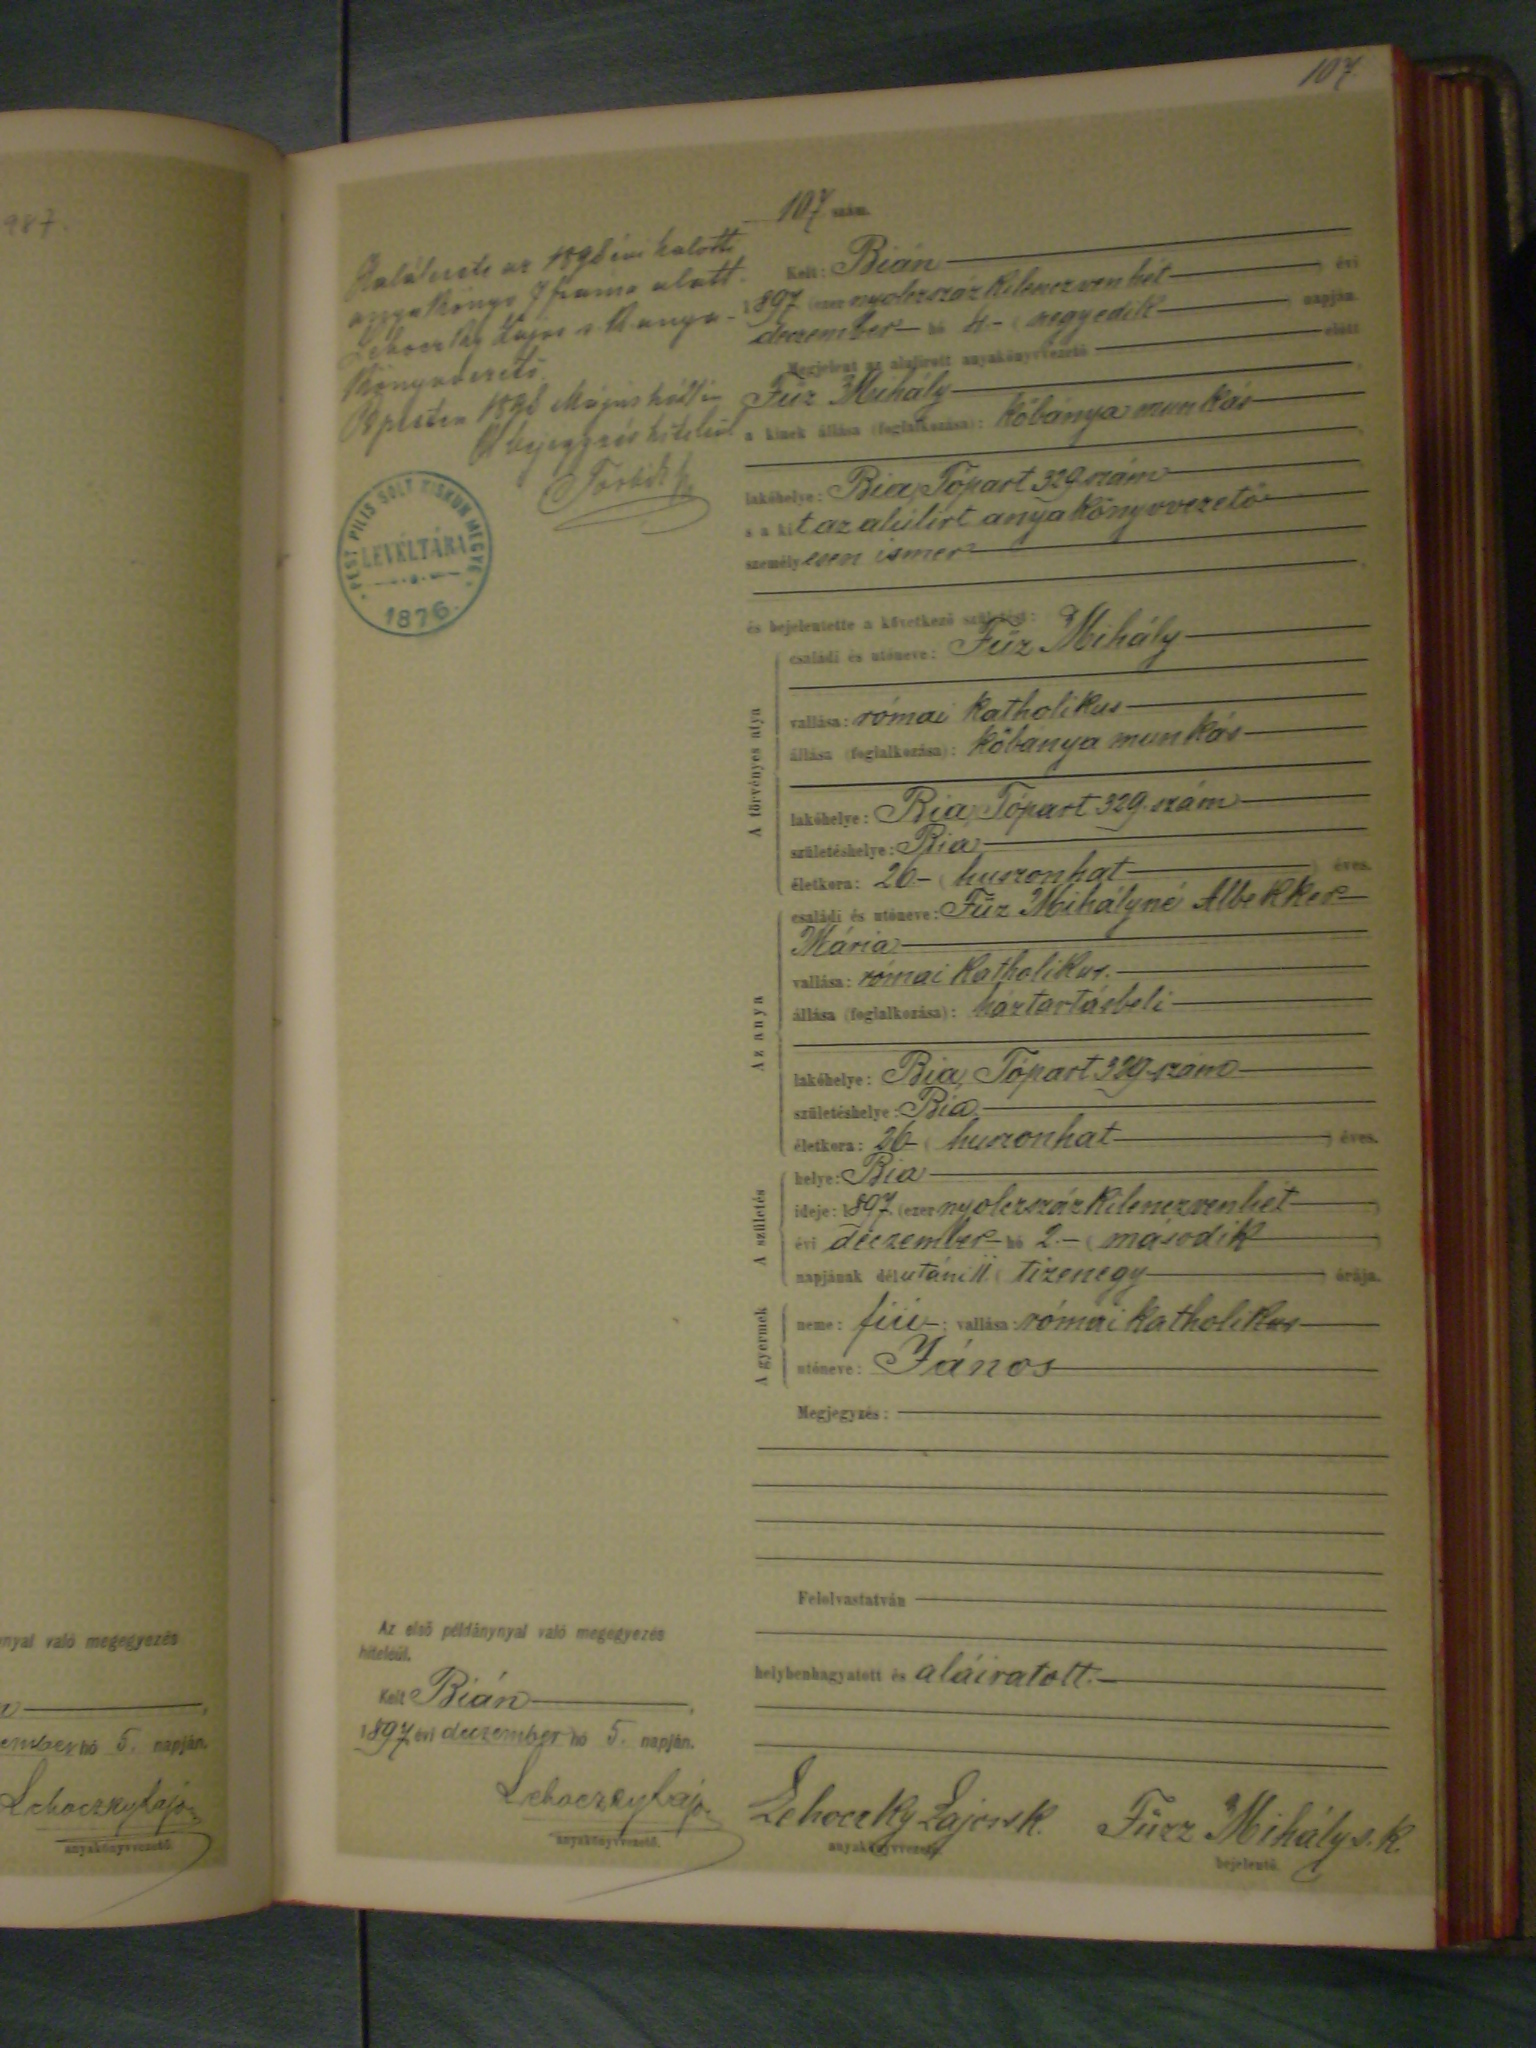 107.
987.
107 szám.
Kelt: Bián
1897 (ezer nyolczszáz kilenczvenhét) évi
deczember hó 4. (negyedik) napján.
Megjelent az alulírott anyakönyvvezető előtt
Fűz Mihály
a kinek állása (foglalkozása): kőbánya munkás
lakóhelye: Bia, Tópart 329 szám
s a kit az alúlírt anyakönyvvezető
személyesen ismer
és bejelentette a következő születést:
A törvényes atya
családi és utóneve: Fűz Mihály
vallása: római katholikus
állása (foglalkozása): kőbánya munkás
lakóhelye: Bia, Tópart 329. szám
születéshelye: Bia
életkora: 26 (huszonhat) éves.
Az anya
családi és utóneve: Fűz Mihályné Albekker
Mária
vallása: római katholikus.
állása (foglalkozása): háztartásbeli
lakóhelye: Bia, Tópart 329 szám
születéshelye: Bia
életkora: 26 (huszonhat) éves.
A születés
helye: Bia
ideje: 1897 (ezer nyolczszáz kilenczvenhét)
évi deczember hó 2. (második)
napjának délutáni 11 (tizenegy) órája.
A gyermek
neme: fiú; vallása: római katholikus
utóneve: János
Megjegyzés:
Felolvastatván
helybenhagyatott és aláiratott.
Lehoczky Lajos s.k. Fűzz Mihály s.k.
anyakönyvvezető. bejelentő.
az 1898 évi halotti
anyakönyv 7 száma alatt.
Lehoczky Lajos s. k. anya-
könyvvezető.
Bpesten 1898 Május hó
A bejegyzés hiteléül
PEST PILIS SOLT KISKUN MEGYE
LEVÉLTÁRA
1876.
Az első példánynyal való megegyezés
hiteléül.
Kelt Bián,
1897 évi deczember hó 5. napján.
Lehoczky Lajos
anyakönyvvezető.
nyal való megegyezés
ember hó 5. napján.
Lehoczky Lajos
anyakönyvvezető.